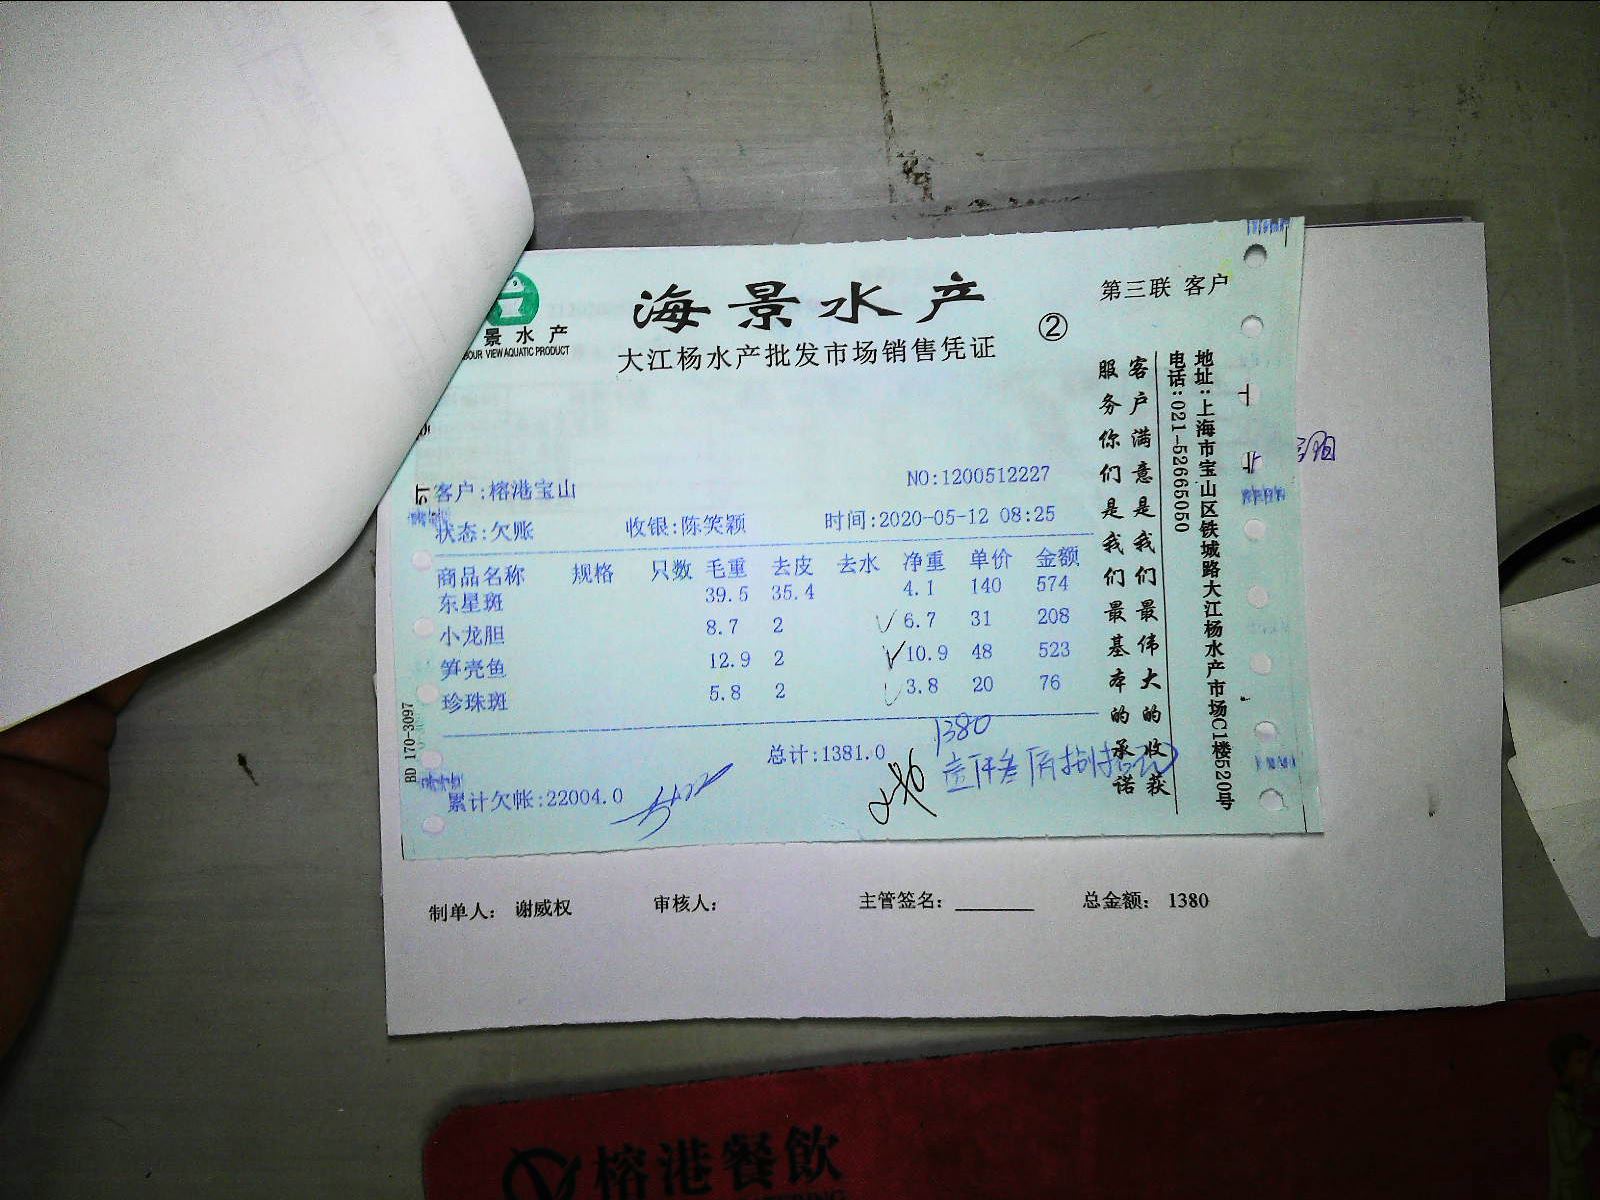 景水产
BOUR VIEW AQUATIC PRODUCT
海景水产
大江杨水产批发市场销售凭证
②
第三联 客户
客户:榕港宝山
NO:1200512227
状态:欠账 收银:陈笑颖 时间:2020-05-12 08:25
商品名称 规格 只数 毛重 去皮 去水 净重 单价 金额
东星斑 39.5 35.4 4.1 140 574
小龙胆 8.7 2 6.7 31 208
笋壳鱼 12.9 2 10.9 48 523
珍珠斑 5.8 2 3.8 20 76
总计:1381.0
1380
壹仟叁佰捌拾元
累计欠帐:22004.0
客户满意是我们最伟大的收获
服务你们是我们最基本的承诺
地址:上海市宝山区铁城路大江杨水产市场C1楼520号
电话:021-52665050
BD 170-3097
制单人: 谢威权 审核人: 主管签名: 总金额: 1380
榕港餐飲